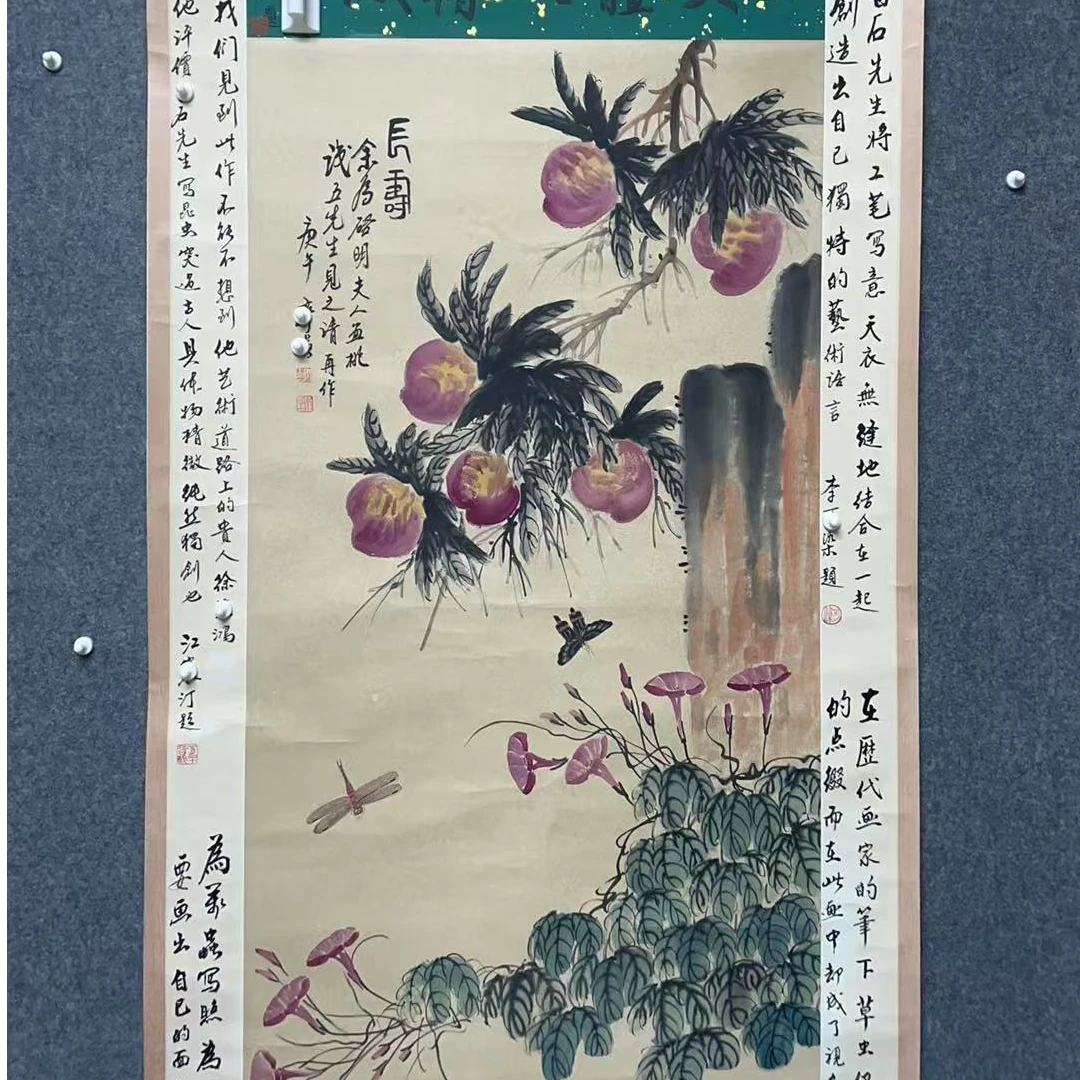 石先生將工笔写意天衣無縫地结合在一起
創造出自己獨特的藝術语言
李 染題
在歷代画家的筆下草虫
的点缀而在此画中却成了视
長壽
余為啓明夫人画桃
五先生見之请再作
庚午
我们見到此作不能不想到他艺術道路上的貴人徐 鸿
他评價 石先生写昆虫突過古人具体物精微純然獨創也
江 汀题
為萬蟲写照為
要画出自己的面